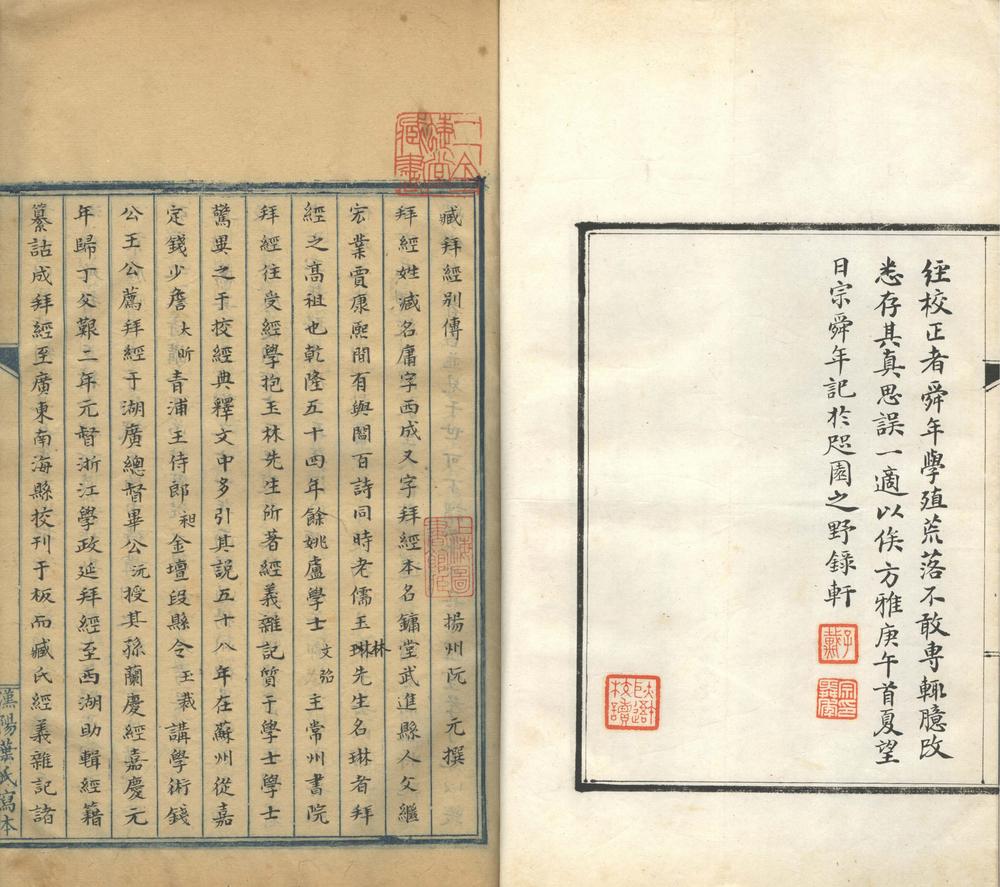 經校正者舜年學殖荒落不敢專輒臆改
悉存其真思誤一適以俟方雅庚午首夏望
日宗舜年記於咫園之野錄軒
子戴
二金蜨堂臧書
臧拜經別傳 揚州阮元撰
上海圖書館臧
拜經姓臧名庸字西成又字拜經本名鏞堂武進縣人父繼
宏業賈康熙間有與閻百詩同時老儒玉琳林先生名琳者拜
經之高祖也乾隆五十四年餘姚盧學士文弨主常州書院
拜經往受經學抱玉林先生所著經義雜記質于學士學士
驚異之于挍經典釋文中多引其說五十八年在蘇州從嘉
定錢少詹大昕青浦王侍郎昶金壇段縣令玉裁講學術錢
公王公薦拜經于湖廣總督畢公沅授其孫蘭慶經嘉慶元
年歸丁父艱二年元督浙江學政延拜經至西湖助輯經籍
纂詁成拜經至廣東南海縣挍刊于板而臧氏經義雜記諸
漢陽葉氏寫本